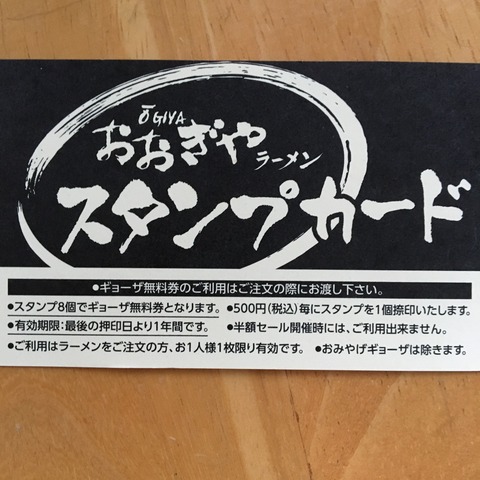 ŌGIYA
おおぎやラーメン
スタンプカード
●ギョーザ無料券のご利用はご注文の際にお渡し下さい。
●スタンプ8個でギョーザ無料券となります。 ●500円(税込)毎にスタンプを1個捺印いたします。
●有効期限:最後の押印日より1年間です。 ●半額セール開催時には、ご利用出来ません。
●ご利用はラーメンをご注文の方、お1人様1枚限り有効です。 ●おみやげギョーザは除きます。